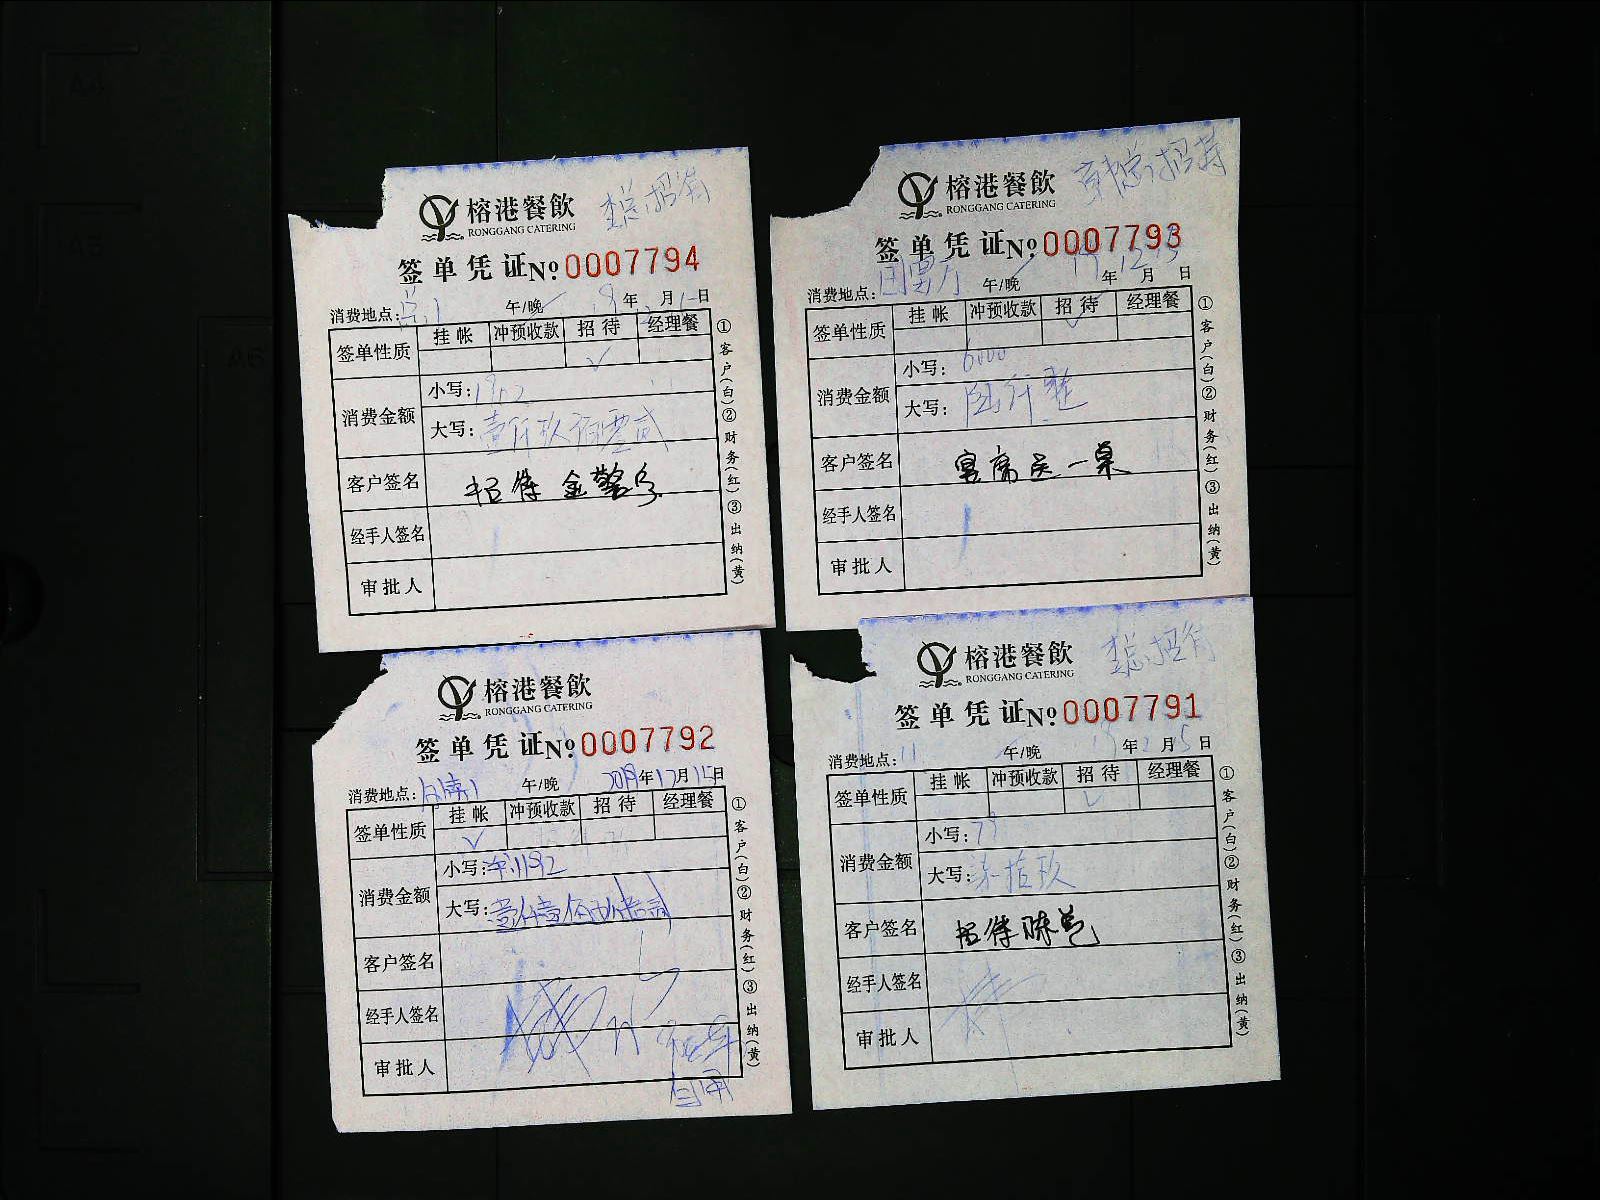 榕港餐飲
李总招待
RONGGANG CATERING
签单凭证№0007794
消费地点： 午/晚 19年 月 日
签单性质 挂帐 冲预收款 招待 经理餐
√
消费金额 小写：1902
大写：壹仟玖佰零贰
客户签名 招待
经手人签名
审批人
①客户(白)②财务(红)③出纳(黄)
榕港餐飲
招待
RONGGANG CATERING
签单凭证№0007793
消费地点： 午/晚 19年12月 日
签单性质 挂帐 冲预收款 招待 经理餐
√
消费金额 小写：6000
大写：陆仟整
客户签名 一桌
经手人签名
审批人
①客户(白)②财务(红)③出纳(黄)
榕港餐飲
RONGGANG CATERING
签单凭证№0007792
消费地点： 午/晚 2019年12月15日
签单性质 挂帐 冲预收款 招待 经理餐
√
消费金额 小写：1192
大写：壹仟壹佰玖拾贰
客户签名
经手人签名
审批人
自用
①客户(白)②财务(红)③出纳(黄)
榕港餐飲
李总招待
RONGGANG CATERING
签单凭证№0007791
消费地点：11 午/晚 19年 月 5日
签单性质 挂帐 冲预收款 招待 经理餐
√
消费金额 小写：79
大写：柒拾玖
客户签名 招待陈总
经手人签名
审批人
①客户(白)②财务(红)③出纳(黄)